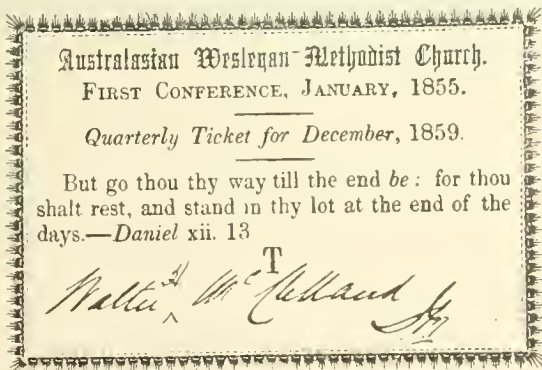 Australasian Wesleyan-Methodist Church.
FIRST CONFERENCE, JANUARY, 1855.
Quarterly Ticket for December, 1859.
But go thou thy way till the end be: for thou
shalt rest, and stand in thy lot at the end of the
days.—Daniel xii. 13
T
Walter McClelland